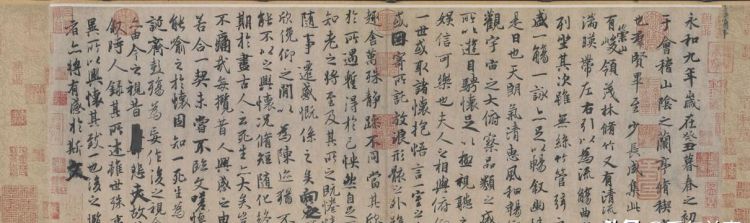 永和九年歲在癸丑暮春之初
于會稽山陰之蘭亭脩稧
也群賢畢至少長咸集此
有崇山峻領茂林脩竹又有清
湍暎帶左右引以為流觴曲
列坐其次雖無絲竹管弦
盛一觴一詠亦足以暢敘幽
是日也天朗氣清惠風和暢
觀宇宙之大俯察品類之盛
所以遊目騁懷足以極視聽
娛信可樂也夫人之相與俯
一世或取諸懷抱悟言一室之
或因寄所託放浪形骸之外
趣舍萬殊靜躁不同當其
於所遇蹔得於己怏然自足
知老之將至及其所之既惓
隨事遷感慨係之矣向之
欣俛仰之間以為陳迹猶不
能不以之興懷況脩短隨化終
期於盡古人云死生亦大矣豈
不痛哉每攬昔人興感之由
若合一契未嘗不臨文嗟悼
能喻之於懷固知一死生為
誕齊彭殤為妄作後之視
亦由今之視昔悲夫故
敘時人錄其所述雖世殊事
異所以興懷其致一也後之攬
者亦將有感於斯文